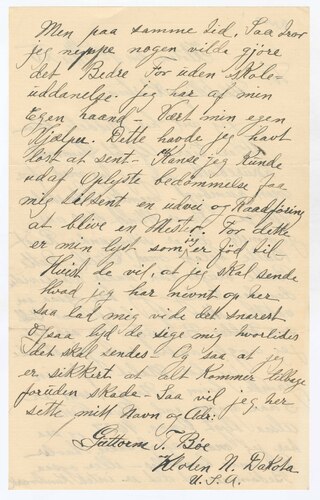 Men paa samme tid. Saa tror
jeg neppe nogen vilde gjöre
det Bedre For uden Skole=
uddanelse. jeg har af min
Egen haand - Vært min egen
Hjælper. Dette havde jeg havt
löst at sent - Kanse jeg Kunde
udaf Oplyste bedömmelse faa
mig tilsent en udvei og Raadföring
at blive en Mester. For dette
er min lyst som jeg er föd til -
Hvist de vil, at jeg skal sende
hvad jeg har nevnt og her,
saa lad mig vide det snarest
Og saa lyd de sige mig hvorlides
det skal sendes. Og saa at jeg
er sikkert at alt Kommer tilbage
foruden skade - Saa vil jeg her
sette mitt Navn og Adr:
Guttorm T. Böe
N. Dakota
U.S.A.